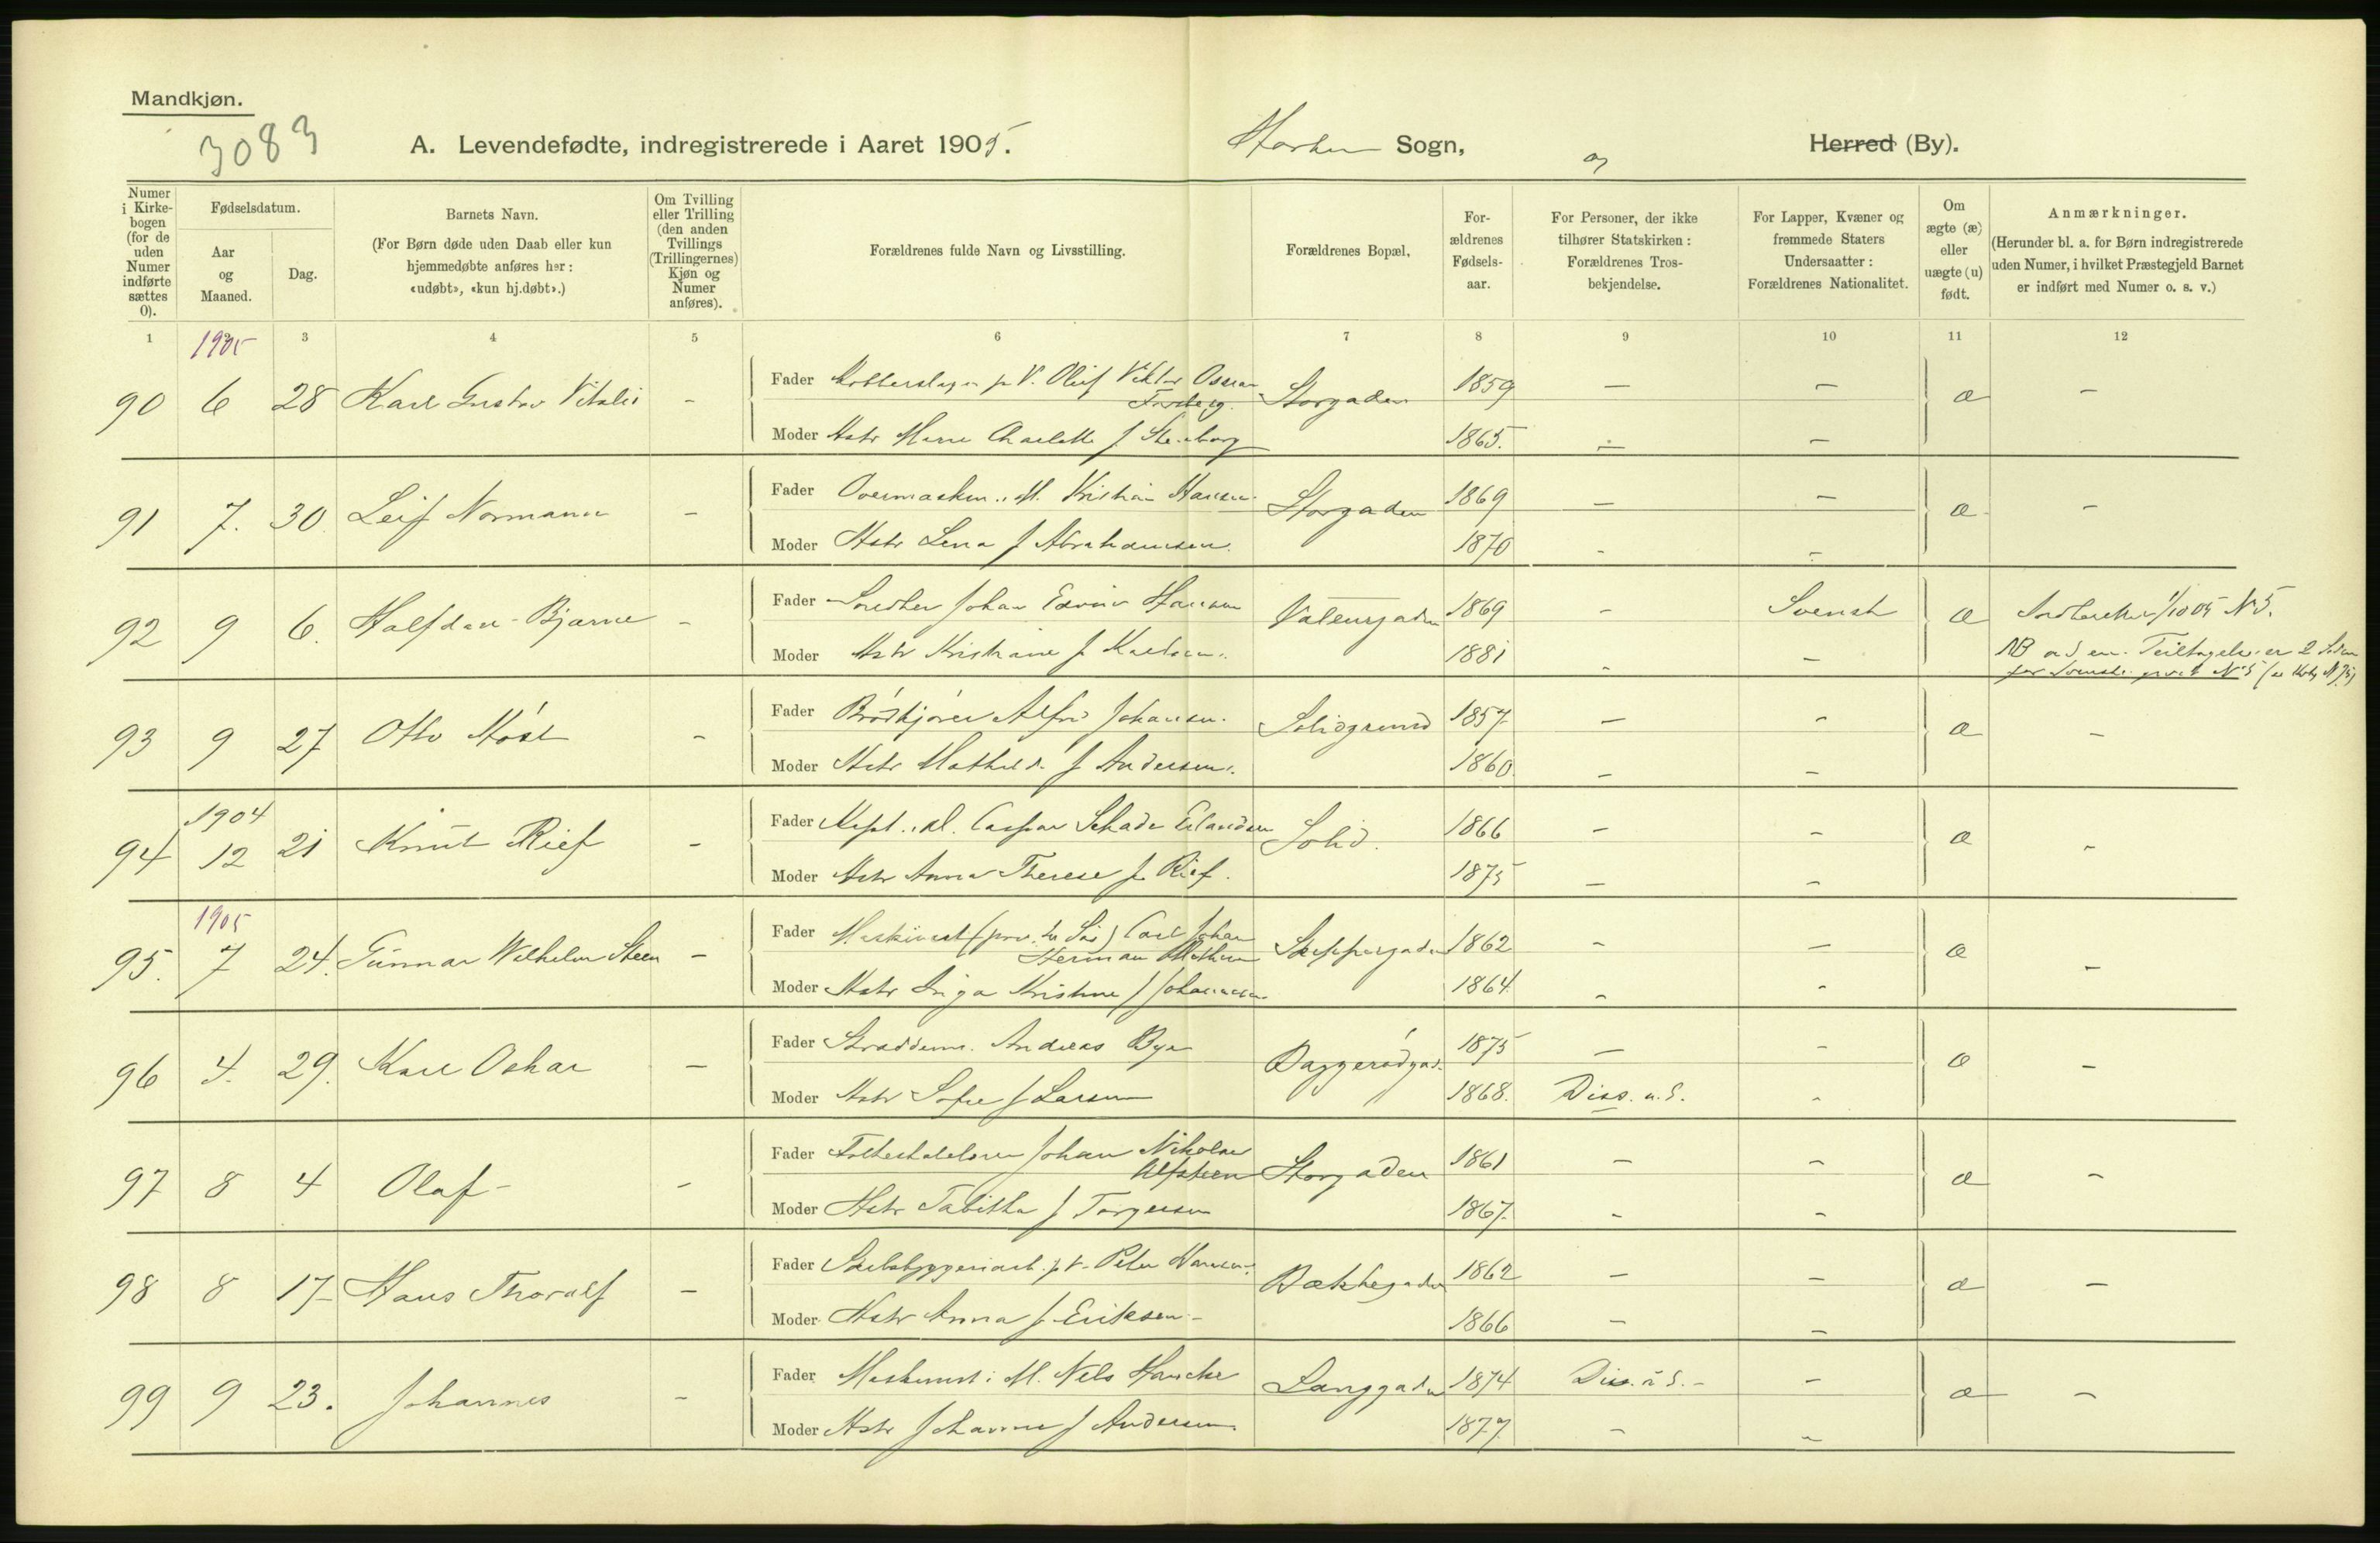 Mandkjøn.
3083
A. Levendefødte, indregistrerede i Aaret 1905.
Horten Sogn,
og
Herred (By).
Numer i Kirkebogen (for de uden Numer indførte sættes 0).
Fødselsdatum.
Aar og Maaned.
Dag.
Barnets Navn.
(For Børn døde uden Daab eller kun hjemmedøbte anføres her: «udøbt», «kun hj.døbt».)
Om Tvilling eller Trilling (den anden Tvillings (Trillingernes) Kjøn og Numer anføres).
Forældrenes fulde Navn og Livsstilling.
Forældrenes Bopæl,
Forældrenes Fødselsaar.
For Personer, der ikke tilhører Statskirken: Forældrenes Trosbekjendelse.
For Lapper, Kvæner og fremmede Staters Undersaatter: Forældrenes Nationalitet.
Om ægte (æ) eller uægte (u) født.
Anmærkninger.
(Herunder bl. a. for Børn indregistrerede uden Numer, i hvilket Præstegjeld Barnet er indført med Numer o. s. v.)
1 1905 3 4 5 6 7 8 9 10 11 12
90 6 28 Karl Gustav Vitalis - Fader Kobberslager p V. Oluf Viktor Oscar Forsberg. Storgaden 1859 - - æ -
Moder Hstr Marie Charlotte f Stenborg 1865. - -
91 7. 30 Leif Normann - Fader Overmaskin. M. Kristian Hansen Storgaden 1869 - - æ -
Moder Hstr Lena f Abrahamsen. 1870 - -
92 9 6. Halfdan Bjarne - Fader Snedker Johan Edvin Hansen 1869 - Svensk æ 1/10 05 N 5.
Moder Hstr Kristiane f Karlsen. 1881 - - NB
93 9 27 Otto Kåre - Fader Brødkjører Alfred Johansen. Solidgrund 1857 - - æ -
Moder Hstr Mathilde f Andersen. 1860. - -
1904
94 12 21 Knut Rief - Fader Kapt. M. Caspar Schade Erlandsen Solid. 1866 - - æ -
Moder Hstr Anna Therese f. Rief. 1875 - -
1905
95. 7 24. Gunnar Wilhelm Steen - Fader Carl Johan Herman Skippergaden 1862 - - æ -
Moder Hstr Inga Kristine f Johannesen 1864. - -
96 4. 29. Karl Oskar - Fader Skræddern. Andreas Bye Baggerødgad. 1875 - - æ -
Moder Hstr Sofie f Larsen 1868. Diss. u. S. -
97 8 4 Olaf - - Fader Folkeskolelærer Johan Nikolai Alfsteen Storgaden 1861 - - æ -
Moder Hstr Tabitha f Torgersen 1867. - -
98 8 17 Hans Thoralf - Fader Skibsbyggeriarb. p V. Peter Hansen. Bakkegaden 1862 - - æ -
Moder Hstr Anna f. Eriksen - 1866 - -
99 9 23. Johannes - Fader Maskinist i M. Nels Hancke Langgaden 1874 Diss. u S. - - æ -
Moder Hstr Johanne f Andersen. 1877 - -